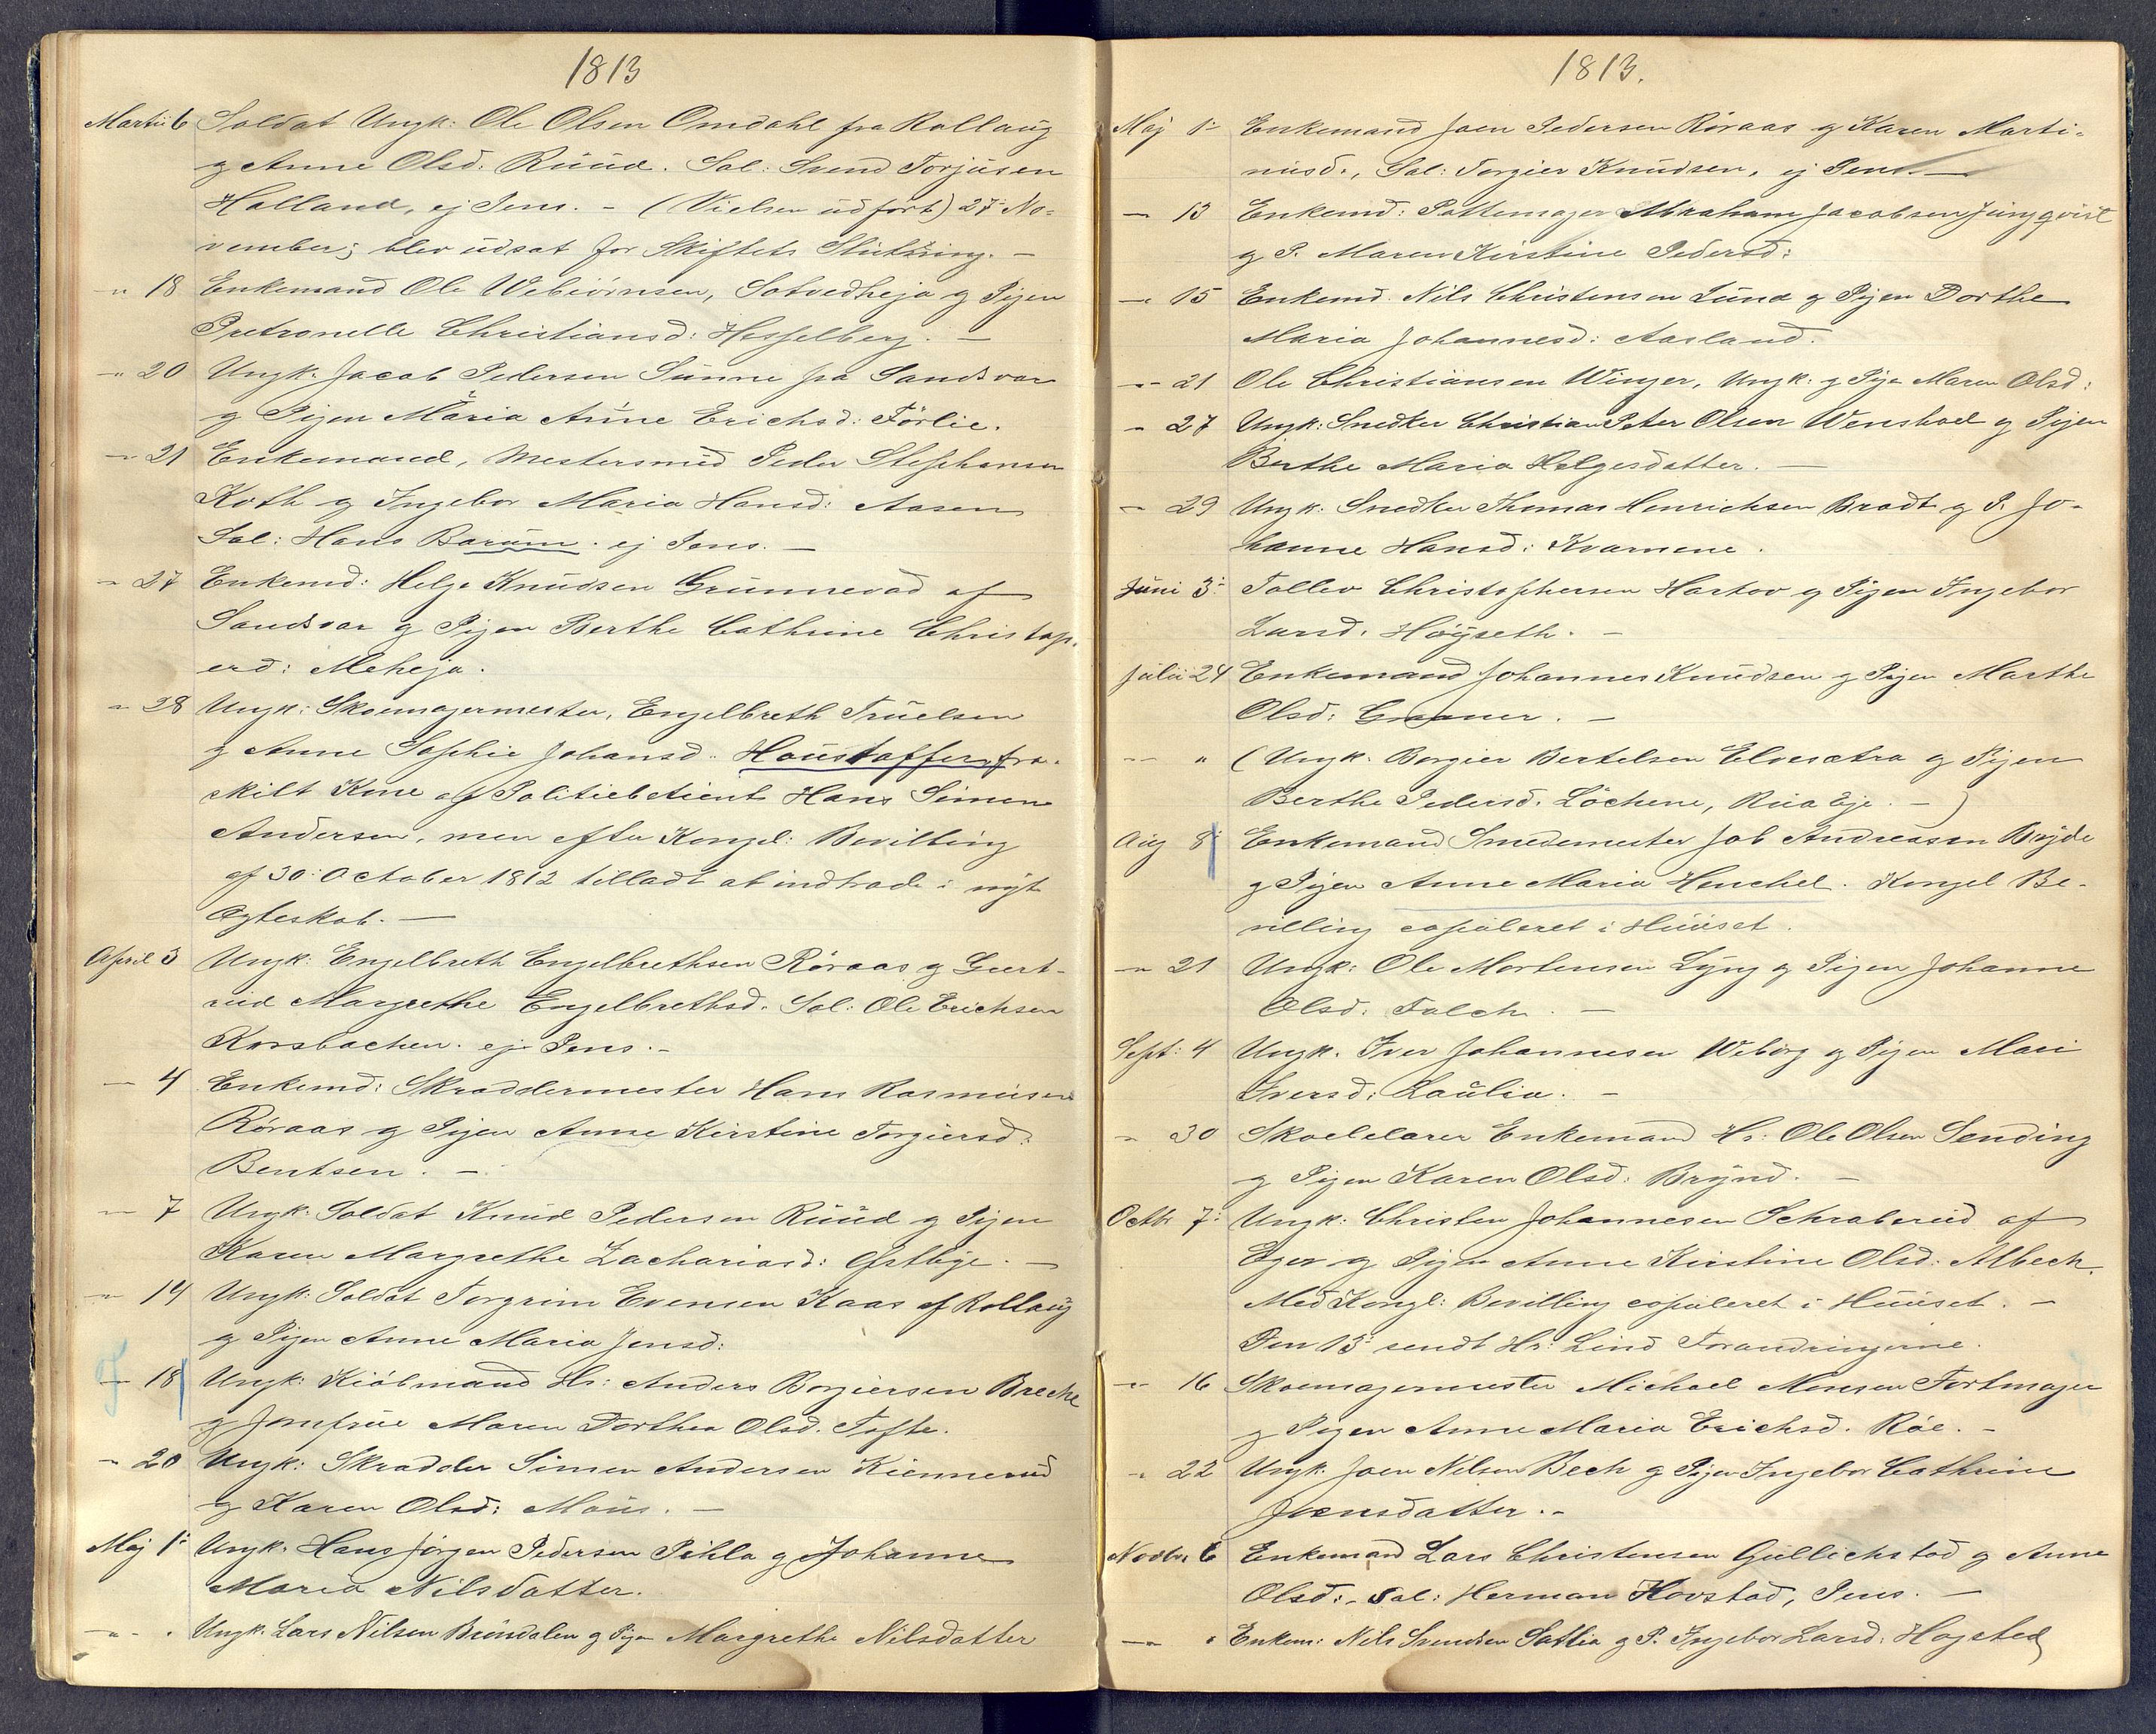 1813
Martii 6 Soldat Ungk: Ole Olsen Omdahl fra Rollaug
og Anne Olsd: Ruud. Sal: Svend Torjusen
Holland, ej Pens. - (Vielsen udført) 27de No-
vember; blev udsat for Skiftets Slutning. -
-"- 18 Enkemand Ole Webiörnsen, Sotvedheja og Pigen
Pretronelle Christiansd: Hesselberg. -
-"- 20 Ungk: Jacob Pedersen Sunne fra Sandsvær
og Pigen Maria Anne Erichsd: Förlie.
-"- 21 Enkemand, Mestersmed Peder Stephansen
Koth og Ingebor Maria Hansd: Aasen
Sal: Hans Barum. ej Pens. -
-"- 27 Enkemd: Helge Knudsen Grunnevad af
Sandsvær og Pigen Berthe Cathrine Christop-
ersd: Meheja.
-"- 28 Ungk: Skoemagermester, Engelbreth Truelsen
og Anne Sophie Johansd: Houstoffer, fra-
skilt Kone af Politiebetient Hans Simen
Andersen, men efter Kongel: Bevilling
af 30: October 1812 tilladt at indtræde i nyt
Ægteskab. -
April 3 Ungk: Engelbreth Engelbrethsen Röraas og Giert-
rud Margrethe Engelbrethsd. Sal: Ole Erichsen
Korsbachen. ej Pens. -
- 4 Enkemd: Skræddermester Hans Rasmusen
Röraas og Pigen Anne Kirstine Torgiersd:
Bentsen. -
-"- 7 Ungk: Soldat Knud Pedersen Ruud og Pigen
Karen Margrethe Zachariasd: Östbye. -
-"- 14 Ungk: Soldat Torgrim Evensen Kaas af Rollaug
og Pigen Anne Maria Jensd:
- 18 Ungk: Kiöbmand Hr: Anders Borgiersen Breche
og Jomfrue Maren Dorthea Olsd. Tofte.
-"- 20 Ungk: Skrædder Simen Andersen Kiennerud
og Karen Olsd: Mous. -
Maj 1: Ungk. Hans Jörgen Pedersen Pihla og Johanne
Maria Nilsdatter.
-"- " Ungk. Lars Nilsen Brundalen og Pige Margrethe Nilsdatter
1813.
Maj 1: Enkemand Joen Pedersen Röraas og Karen Marti-
nusd., Sal: Torgier Knudsen, ej Pens. -
- 13 Enkemd: Pottemager Abraham Jacobsen Jungqvist
og P. Maren Kirstine Pedersd:
-"- 15 Enkemd. Nils Christensen Lund og Pigen Dorthe
Maria Johannesd: Aasland.
-"- 21 Ole Christiansen Winger, Ungk: og Pige Maren Olsd:
-"- 27 Ungk: Snedker Christian Peter Olsen Wenshoel og Pigen
Berthe Maria Helgesdatter. -
-"- 29 Ungk: Snedker Thomas Henrichsen Bradt og P. Jo-
hanne Hansd: Kvarnene.
Juni 3: Tollev Christophersen Hartov og Pigen Ingebor
Larsd. Höyseth. -
Julii 24 Enkemand Johannes Knudsen og Pigen Marthe
Olsd: Graner. -
-"- " (Ungk. Borgier Bertelsen Elvesætra og Pigen
Berthe Pedersd. Löchene, Rua Eje. - )
Aug 8: Enkemand Smedemester Job Andreassen Bryde
og Pigen Anne Maria Henchel. Kongel Be-
villing copuleret i Huuset.
-"- 21 Ungk: Ole Mortensen Lyng og Pigen Johanne
Olsd. Falch. -
Sept: 4 Ungk. Iver Johannesen Weborg og Pigen Mari
Iversd: Laulia. -
-"- 30 Skoelelærer Enkemand Hr: Ole Olsen Sending
og Pigen Karen Olsd: Brynd. -
Octbr 7: Ungk: Christen Johannesen Schraberud af
Eger og Pigen Anne Kirstine Olsd: Albech.
Med Kongl: Bevilling copuleret i Huuset. -
Den 13: sendt Hr: Lind Forandringerne.
-"- 16 Skoemagermester Michael Monsen Fortmager
og Pigen Anne Maria Erichsd. Röe. -
-"- 22 Ungk. Joen Nilsen Bech og Pigen Ingebor Cathrine
Joensdatter. -
Novbr. 6 Enkemand Lars Christensen Gullichstad og Anne
Olsd:, Sal: Herman Hovstad, Pens. -
-"- " Enkem: Nils Svendsen Satlia og P. Ingebor Larsd: Hagsted